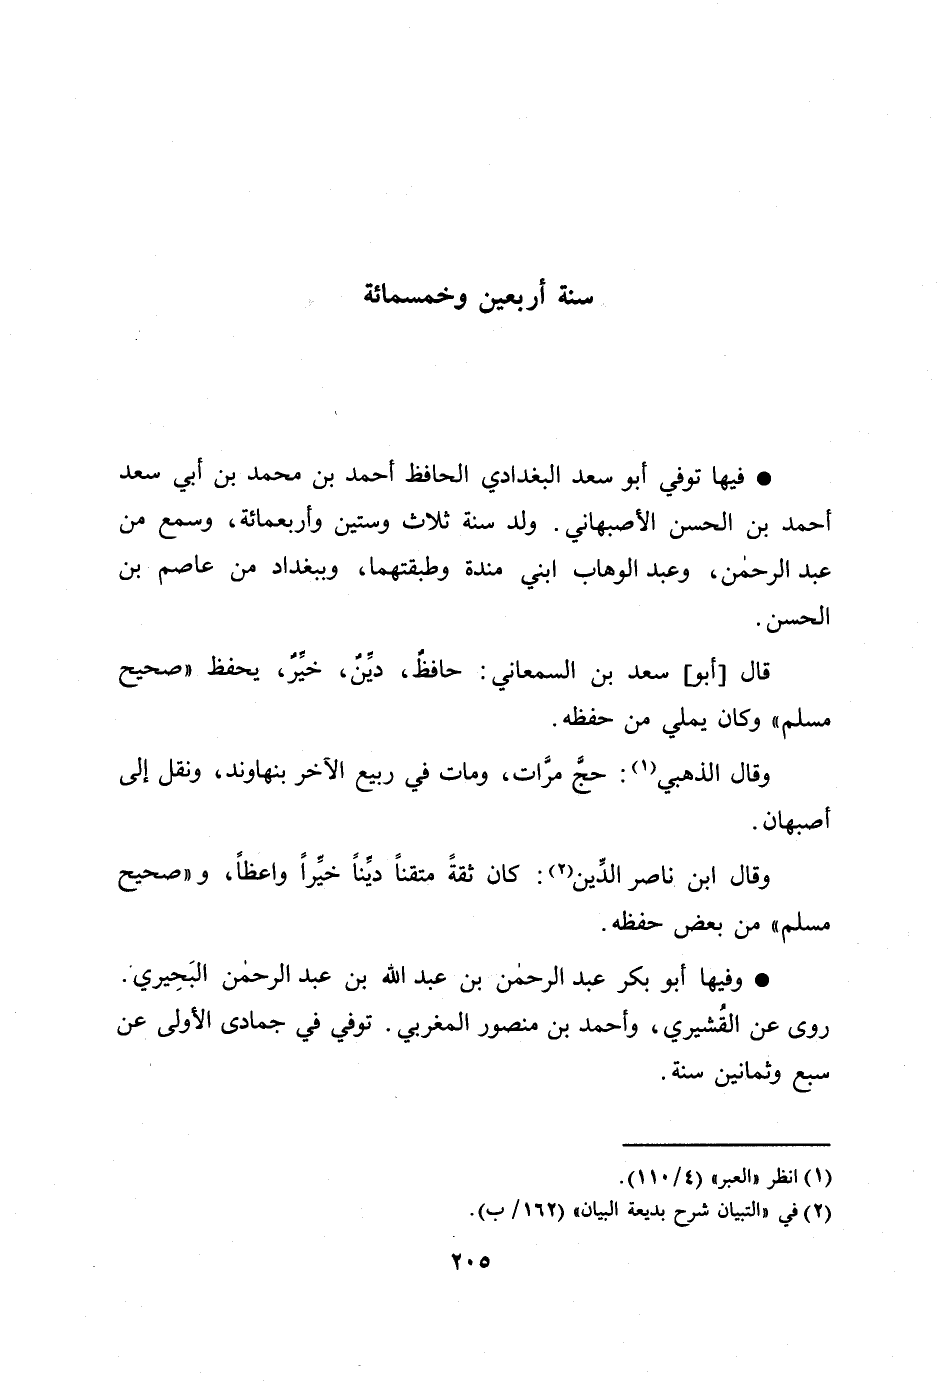 سنة أربعين وخمسمائة
● فيها توفي أبو سعد البغدادي الحافظ أحمد بن محمد بن أبي سعد
أحمد بن الحسن الأصبهاني. ولد سنة ثلاث وستين وأربعمائة، وسمع من
عبد الرحمٰن، وعبد الوهاب ابني مندة وطبقتهما، وببغداد من عاصم بن
الحسن.
قال [أبو] سعد بن السمعاني: حافظٌ، ديِّنٌ، خيِّرٌ، يحفظ «صحيح
مسلم» وكان يملي من حفظه.
وقال الذهبي(١): حجَّ مرَّات، ومات في ربيع الآخر بنهاوند، ونقل إلى
أصبهان.
وقال ابن ناصر الدِّين(٢): كان ثقةً متقناً ديِّناً خيِّراً واعظاً، و«صحيح
مسلم» من بعض حفظه.
● وفيها أبو بكر عبد الرحمٰن بن عبد الله بن عبد الرحمٰن البَحِيري.
روى عن القُشيري، وأحمد بن منصور المغربي. توفي في جمادى الأولى عن
سبع وثمانين سنة.
(١) انظر «العبر» (٤/١١٠).
(٢) في «التبيان شرح بديعة البيان» (١٦٢/ ب).
٢٠٥